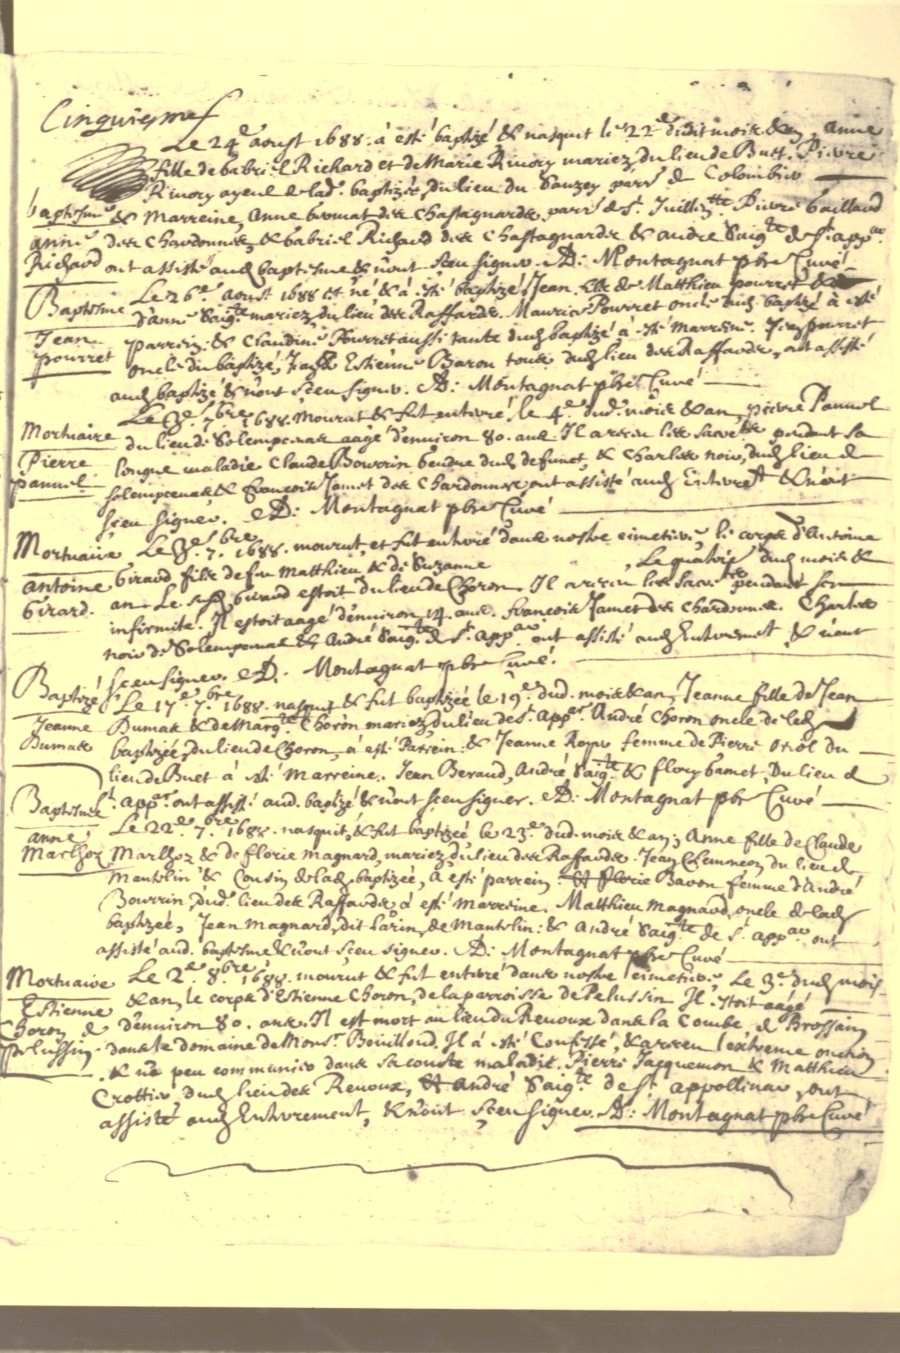 Cinquiesmes
Le 24e aoust 1688. à esté baptizé & nasquit le 22e dudit mois & an, anne
fille de Gabriel Richard et de Marie Rivory mariez, du lieu de Buet. Pierre
Rivory ayeul de lad. baptizée, du lieu du Sauzey parr. de Colombier
baptesme & Marreine, Anne des Chastagnards parr. de St. Juillien. Pierre Gaillaud
anne des Chardonnes, & Gabriel Richard des Chastagnards & André de St. app.
Richard ont assisté aud. baptesme & n'ont sceu signer. D: Montagnat pbre Curé
Baptesme Le 26e aoust 1688 est né & à esté baptizé Jean fils de Matthieu pourret &
d'anne mariez, du lieu des Raffards. Maurice Pourret oncle dud. baptizé à esté
Jean parrein: & Claudine Pourret aussi tante dud. baptizé à esté Marreine. Jean pourret
pourret oncle du baptizé, Estienne Baron tous dud. lieu des Raffards, ont assisté
aud. baptizé & n'ont sceu signer. D: Montagnat pbre Curé
Le 3e 7bre 1688. Mourut & fut enterré le 4e dud. mois & an, pierre Pannel
Mortuaire du lieu de aagé d'environ 80. ans Il a receu les sacrets pendant sa
Pierre longue maladie Claude Bourrin Gendre dud. defunct, & Charles noir, dud. lieu de
pannel & françois Jamet des Chardonnes, ont assisté aud. Enterret & n'ont
sceu signer. D: Montagnat pbre Curé
Mortuaire Le 3e 7bre 1688. mourut, et fut enterré dans nostre cimetiere le corps d'Antoine
antoine Giraud fils de feu Matthieu & de Suzanne , Le quatrie dud. mois &
Girard. an. Le Giraud estoit du lieu de Choron. Il a receu les sacr. pendant son
infirmité. Il estoit aagé d'environ 14. ans. françois Jamet des Chardonnes. Charles
noir de & André de St. app. ont assisté aud. Enterrement, & n'ont
sceu signer. D. Montagnat pbre Curé.
Baptizé Le 17e 7bre 1688. nasquit & fut baptizée le 19e dud. mois & an, Jeanne fille de Jean
Jeanne Dumas & de Choron mariez, du lieu de St. app. André Choron oncle de lad.
Dumas baptizée, du lieu de Choron, à esté Parrein: & Jeanne femme de Pierre du
lieu de Buet à esté Marreine. Jean Beraud, André & flory Gamet, Du lieu de
Baptesme St. app. ont assisté aud. baptizé & n'ont sceu signer. D: Montagnat pbre Curé
Le 22e 7bre 1688. nasquit, & fut baptizée le 23e dud. mois & an; Anne fille de Claude
anne
Marlhoz Marlhoz & de florie Magnard, mariez, du lieu des Raffards. Jean du lieu de
Mantelin & Cousin de lad. baptizée, à esté parrein, florie Baron femme d'André
Bourrin, dud. lieu des Raffards, à esté Marreine. Matthieu Magnard, oncle de lad.
baptizée, Jean Magnard, dit de Mantelin: & André de St. app. ont
assisté aud. baptesme & n'ont sceu signer. D: Montagnat pbre Curé
Mortuaire Le 2e 8bre 1688. mourut & fut enterré dans nostre cimetiere, Le 3e dud. mois
Estienne & an, le corps d'Estienne Choron, de la parroisse de Pelussin. Il estoit aagé
Choron de d'environ 80. ans. Il est mort au lieu du Revoux dans la Combe, de Brossain
Pelussin dans le domaine de Monsr. Bouilloud. Il à esté Confessé, & a receu l'extreme onction
& n'a peu communier dans sa courte maladie. Pierre Jacquemon & Matthieu
Crottier, dud. lieu des Revoux, & andré de St. appollinar, ont
assisté aud. Enterrement, & n'ont sceu signer. D: Montagnat pbre Curé